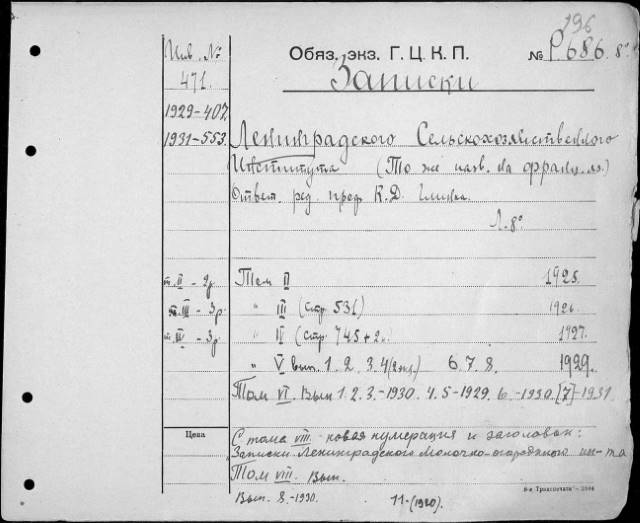 196
Инв. №
471.
Обяз. экз. Г. Ц. К. П.
№ Р686. 8°
Записки
1929-407.
1931-553.
Ленинградского Сельскохозяйственного
Института (То же назв. на франц. яз.)
Ответ. ред. проф. К. Д. Глинка.
Л. 8°
т. II - 2р. Том II 1925.
т. III - 3р. " III (стр. 531) 1926.
т. IV - 3р. " IV (стр. 745+2н. 1927.
" V вып. 1. 2. 3. 4 (2 экз.) 6. 7. 8. 1929.
Том VI. Вып 1. 2. 3.-1930. 4. 5-1929. 6.-1930. [7]-1931
Цена
С тома VIII новая нумерация и заголовок:
Записки Ленинградского Молочно-огородного ин-та
Том VIII. Вып.
Вып. 8.-1930. 11-(1930).